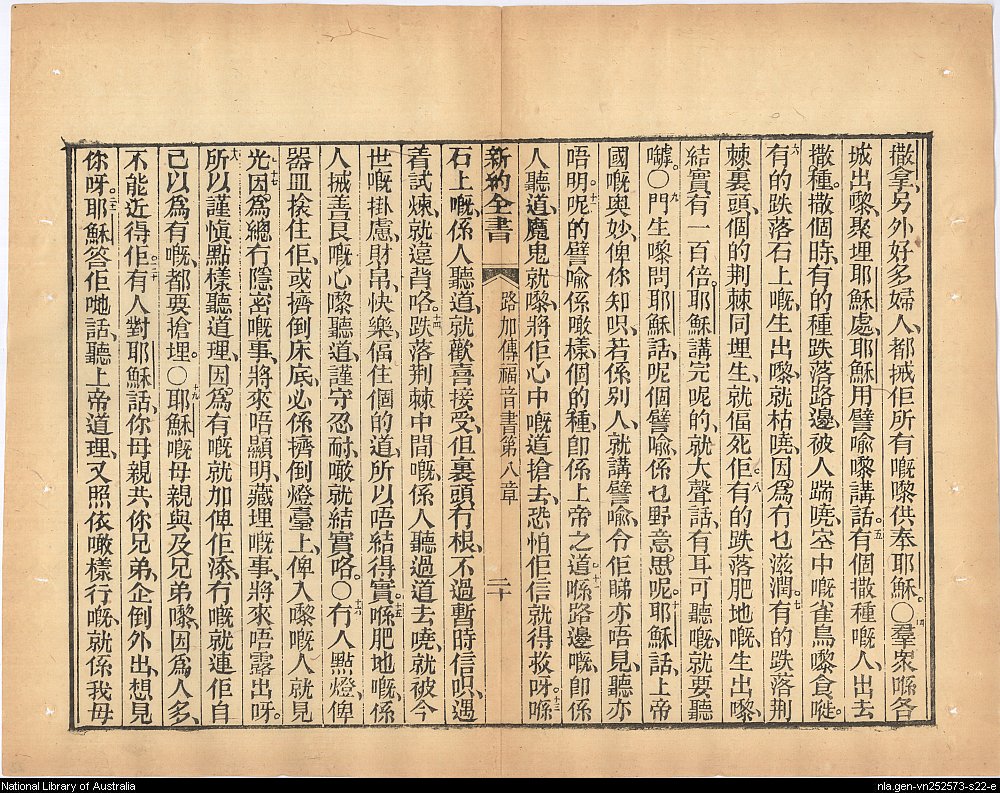 撒拿、另外好多婦人、都搣佢所有嘅嚟供奉耶穌。〇四羣衆喺各
城出嚟、聚埋耶穌處、耶穌用譬喻嚟講話。五有個撒種嘅人、出去
撒種。撒個時、有的種跌落路邊、被人踹嘵、空中嘅雀鳥嚟食嘥。
六有的跌落石上嘅、生出嚟、就枯嘵、因爲冇乜滋潤。七有的跌落荆
棘裏頭、個的荆棘同埋生、就偪死佢。八有的跌落肥地嘅、生出嚟、
結實有一百倍。耶穌講完呢的、就大聲話、有耳可聽嘅、就要聽
嚹。〇九門生嚟問耶穌話、呢個譬喻、係乜野意思呢。十耶穌話、上帝
國嘅奥妙、俾你知呮、若係別人、就講譬喻、令佢睇亦唔見、聽亦
唔明。十一呢的譬喻係噉樣、個的種、卽係上帝之道。十二喺路邊嘅、卽係
人聽道、魔鬼就嚟、將佢心中嘅道搶去、恐怕佢信就得救呀。十三喺
新約全書 路加傳福音書第八章 二十
石上嘅、係人聽道、就歡喜接受、但裏頭冇根、不過暫時信呮、遇
着試煉、就違背咯。十四跌落荆棘中間嘅、係人聽過道去嘵、就被今
世嘅掛慮、財帛、快樂、偪住個的道、所以唔結得實。十五喺肥地嘅、係
人搣善良嘅心嚟聽道、謹守忍耐、噉就結實咯。〇十六冇人點燈、俾
器皿揜住佢、或擠倒床底、必係擠倒燈臺上、俾入嚟嘅人就見
光。十七因爲總冇隱密嘅事、將來唔顯明、藏埋嘅事、將來唔露出呀。
十八所以謹愼點樣聽道理、因爲有嘅就加俾佢添、冇嘅就連佢自
己以爲有嘅、都要搶埋。〇十九耶穌嘅母親與及兄弟嚟、因爲人多、
不能近得佢。二十有人對耶穌話、你母親共你兄弟、企倒外出、想見
你呀。二十一耶穌答佢哋話、聽上帝道理、又照依噉樣行嘅、就係我母
National Library of Australia
nla.gen-vn252573-s22-e